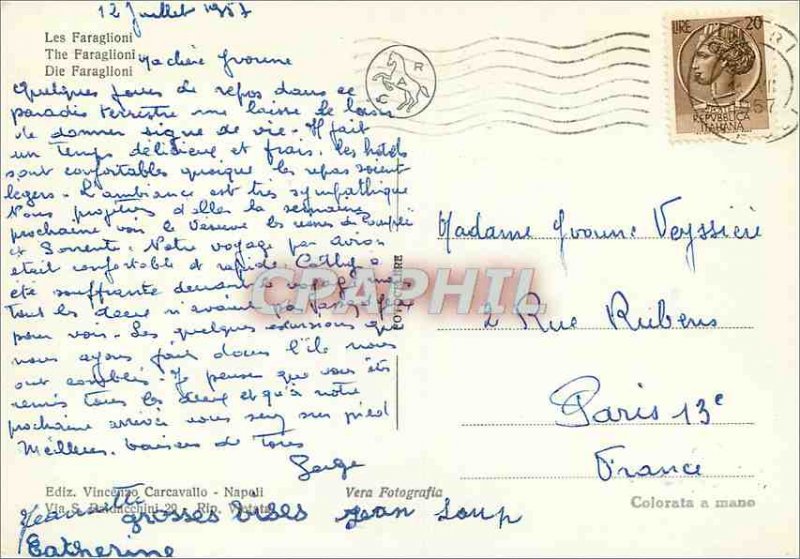 12 Juillet 1957
Les Faraglioni
The Faraglioni
Die Faraglioni
Ma chère Yvonne
Quelques jours de repos dans ce
paradis terrestre me laisse le loisir
de donner signe de vie. Il fait
un temps délicieux et frais. les hôtels
sont confortables quoique les repas soient
légers. L'ambiance est très sympathique
Nous projetons d'aller la semaine
prochaine voir le Vésuve les ruines de Pompéi
et Sorrente. Notre voyage par avion
était confortable et rapide Cathy a
été souffrante durant le voyage
tout les deux
pour voir. Les quelques excursions que
nous ayons fait dans l'île nous
ont comblés. Je pense que vous êtes
remis tous les deux et qu'à notre
prochaine arrivée vous serez sur pied
Meilleurs baisers de tous
Serge
LIRE 20
REPVBBLICA
ITALIANA
CPAPHIL
Madame Yvonne Veyssière
2 Rue Rubens
Paris 13e
France
Ediz. Vincenzo Carcavallo - Napoli
Vera Fotografia
Via S. Baldacchini 29 - Rip. Vietata
Colorata a mano
Jeannette grosses bises Jean Loup
Catherine